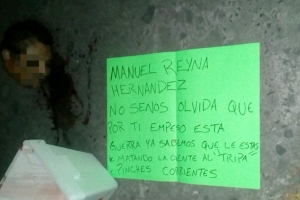 MANUEL REYNA
HERNANDEZ
NO SENOS OLVIDA QUE
POR TI EMPESO ESTA
GUERRA YA SABEMOS QUE LE ESTAS
MATANDO LA GENTE AL "TRIPA"
PINCHES CORRIENTES